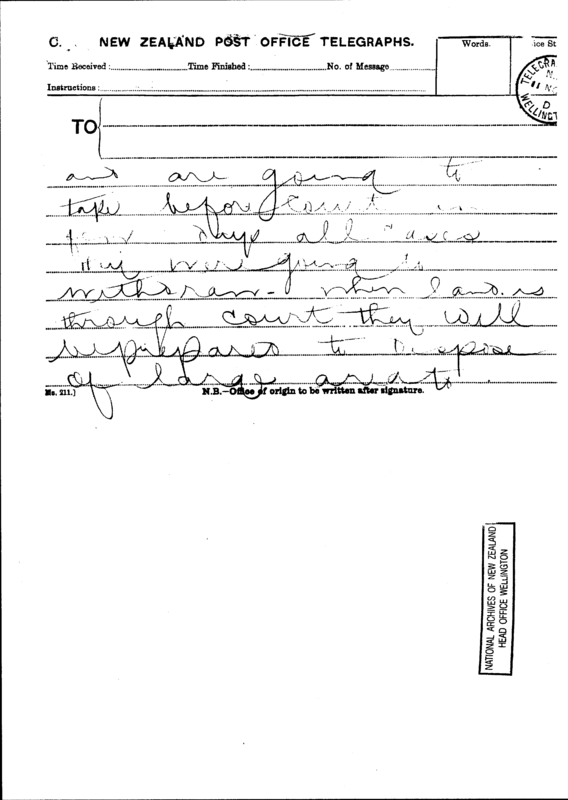 C. NEW ZEALAND POST OFFICE TELEGRAPHS.
Words.
Time Received: Time Finished: No. of Message
Instructions:
TELEGRA
WELLINGT
TO
and are going to
take before Court in
days all cases
they were going to
withdraw - when land is
through court they will
be prepared to dispose
of large area to
No. 211.) N.B.—Office of origin to be written after signature.
NATIONAL ARCHIVES OF NEW ZEALAND
HEAD OFFICE WELLINGTON